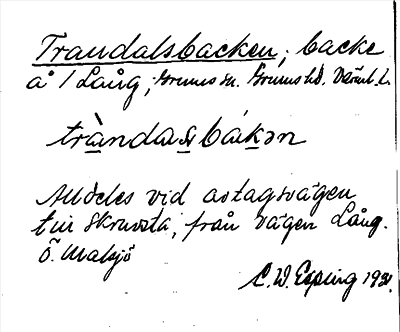 Trandalsbacken; backe
å / Lång, Grums sn. Grums hd. Värml. l.
tràndasbákən
Alldeles vid avtagsvägen
till Skruvsta, från vägen Lång.
Ö. Malsjö
C. W. Esping 1930.